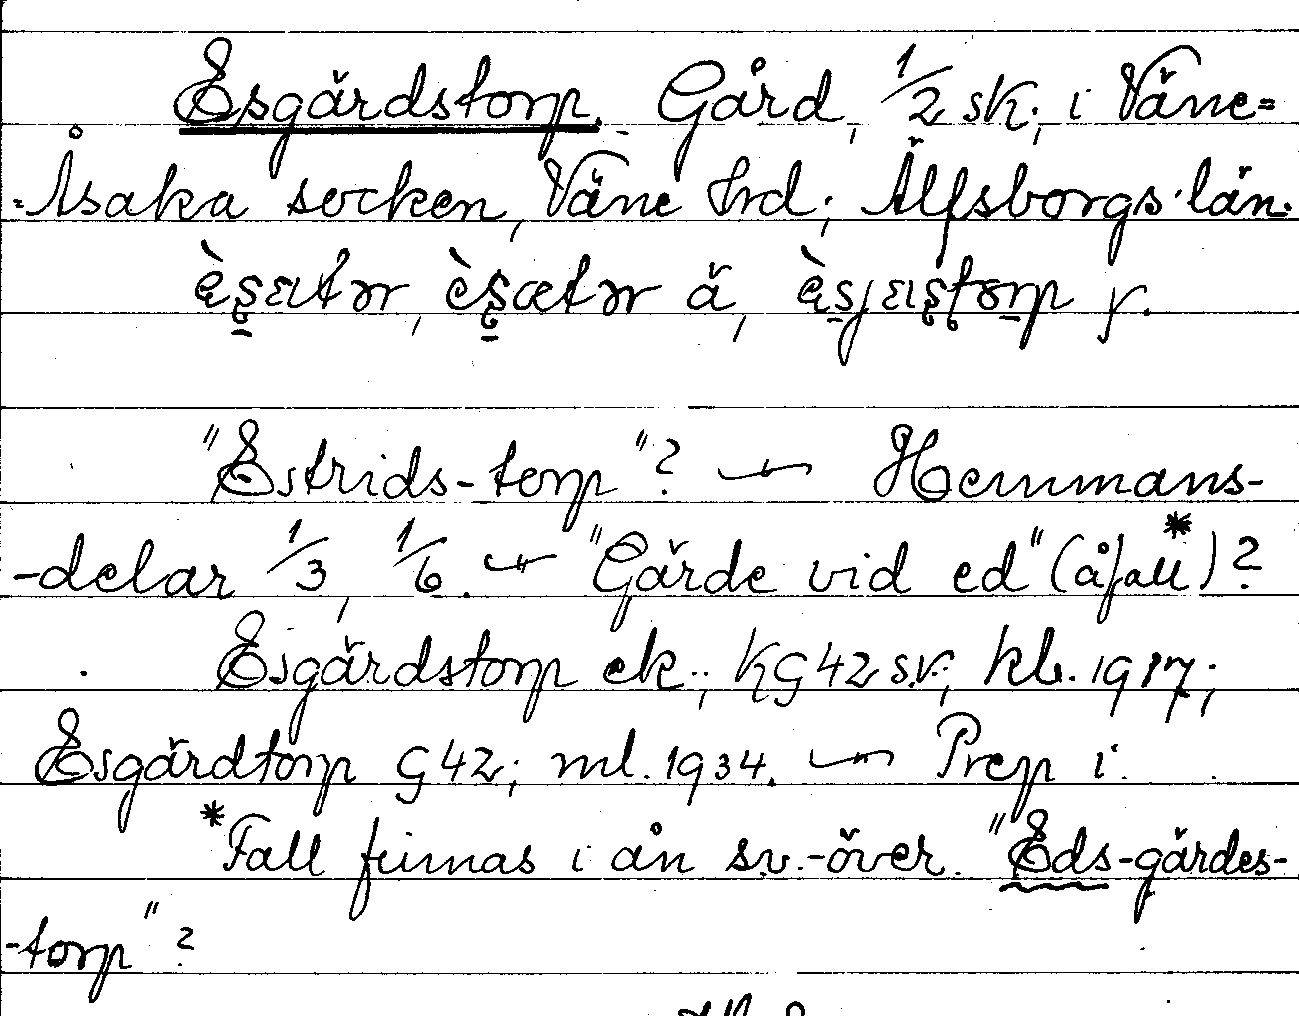 Esgärdstorp. Gård, 1/2 sk; i Väne=
=Åsaka socken, Väne hrd; Älfsborgs län.
ä,
"Estrids-torp"? — Hemmans-
-delar 1/3, 1/6. — "Gärde vid ed" (åfall*)?
Esgärdstorp ek.; KG42 sv; kb. 1917;
Esgärdtorp G42; ml. 1934. — Prep i.
*Fall finnas i ån sv.-över. "Eds-gärdes-
-torp"?